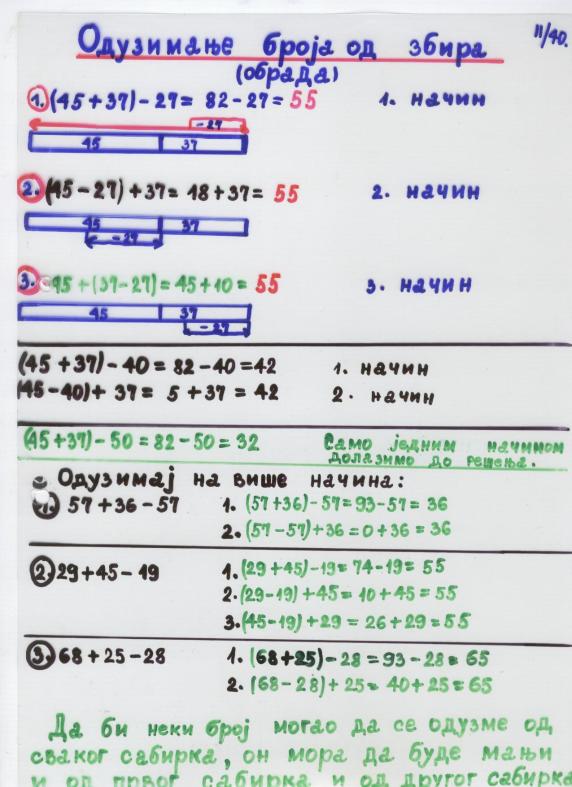 Одузимање броја од збира
II/40.
(обрада)
1. (45+37)-27= 82-27= 55 1. начин
-27
45 37
2. (45-27)+37= 18+37= 55 2. начин
45 37
-27
3. 45+(37-27)=45+10= 55 3. начин
45 37
-27
(45+37)-40=82-40=42 1. начин
(45-40)+ 37= 5+37= 42 2. начин
(45+37)-50=82-50=32 Само једним начином
долазимо до решења.
Одузимај на више начина:
1. 57+36-57 1. (57+36)-57=93-57=36
2. (57-57)+36=0+36=36
2. 29+45-19 1. (29+45)-19=74-19=55
2. (29-19)+45=10+45=55
3. (45-19)+29=26+29=55
3. 68+25-28 1. (68+25)-28=93-28=65
2. (68-28)+25=40+25=65
Да би неки број могао да се одузме од
сваког сабирка, он мора да буде мањи
и од првог сабирка и од другог сабирка